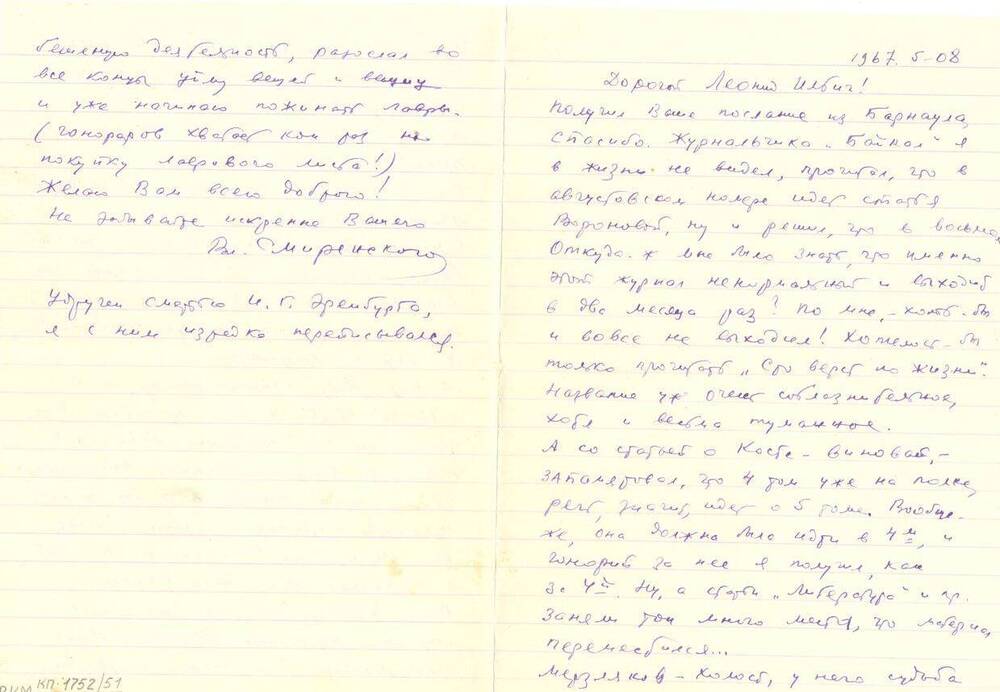 1967. 5-08
Дорогой Леонид Ильич!
Получил Ваше послание из Барнаула,
спасибо. Журнальчика „Байкал" я
в жизни не видел, прочитал, что в
августовском номере идет статья
Вороновой, ну и решил, что в восьмом.
Откуда ж мне было знать, что именно
этот журнал ненормальный и выходит
в два месяца раз? По мне, - хоть-бы
и вовсе не выходил! Хотелось-бы
только прочитать „Сто верст по жизни".
Название уж очень соблазнительное,
хотя и весьма туманное.
А со статьей о Косте - виноват, -
запамятовал, что 4 том уже на полке,
речь, значит, идет о 5 томе. Вообще-
же, она должна была идти в 4м, и
гонорар за нее я получил, как
за 4й. Ну, а статьи „Литература" и пр.
заняли там много места, что материал
переместился...
Мерзляков - холост, у него судьба
бешеную деятельность, разослал во
все концы уйму вещей и
и уже начинаю пожинать лавры.
(гонораров хватает как раз на
покупку лаврового листа!)
Желаю Вам всего доброго!
Не забывайте искренне Вашего
Вл. Смиренского
Удручен смертью И. Г. Эренбурга,
я с ним изредка переписывался.
КП-1752/51